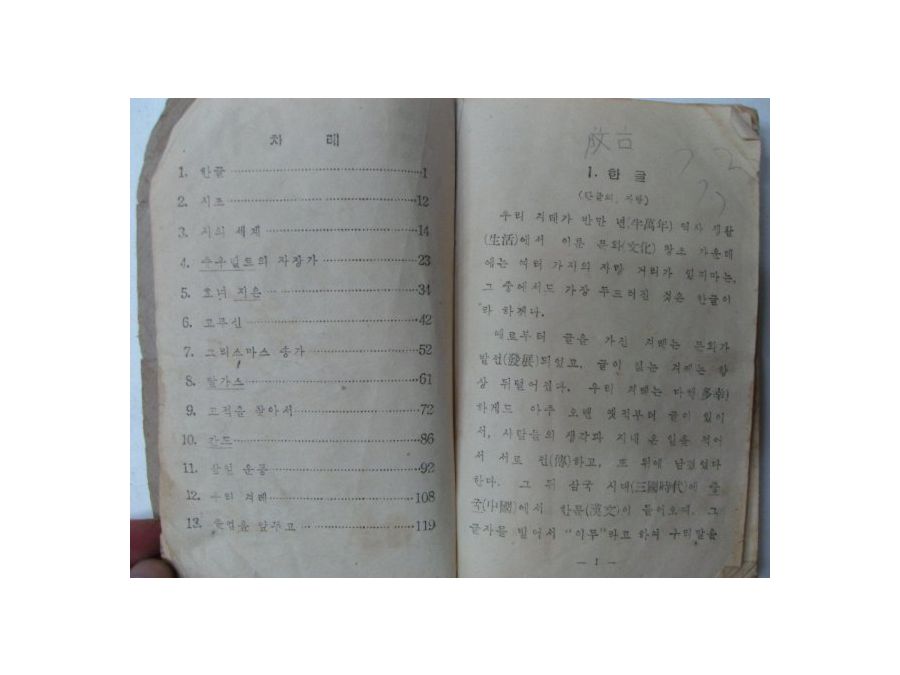 차 례
1. 한글 1
2. 시조 12
3. 시의 세계 14
4. 의 자장가 23
5. 호너 지은 34
6. 고무신 42
7. 크리스마스 송가 52
8. 탈가스 61
9. 고적을 찾아서 72
10. 간드 86
11. 운동 92
12. 우리 겨레 108
13. 졸업을 앞두고 119
1. 한 글
(한글의 자랑)
우리 겨레가 반만 년(半萬年) 역사 생활
(生活)에서 이룬 문화(文化) 창조 가운데
에는 여러 가지의 자랑 거리가 있지마는,
그 중에서도 가장 뚜드러진 것은 한글이
라 하겠다.
예로부터 글을 가진 겨레는 문화가
발전(發展)되었고, 글이 없는 겨레는 항
상 뒤떨어졌다. 우리 겨레는 다행(多幸)
하게도 아주 오랜 옛적부터 글이 있어
서, 사람들의 생각과 지내 온 일을 적어
서 서로 전(傳)하고, 또 뒤에 남겼었다
한다. 그 뒤 삼국 시대(三國時代)에 중
국(中國)에서 한문(漢文)이 들어오며, 그
글자를 빌어서 "이두"라고 하여 우리말을
— 1 —